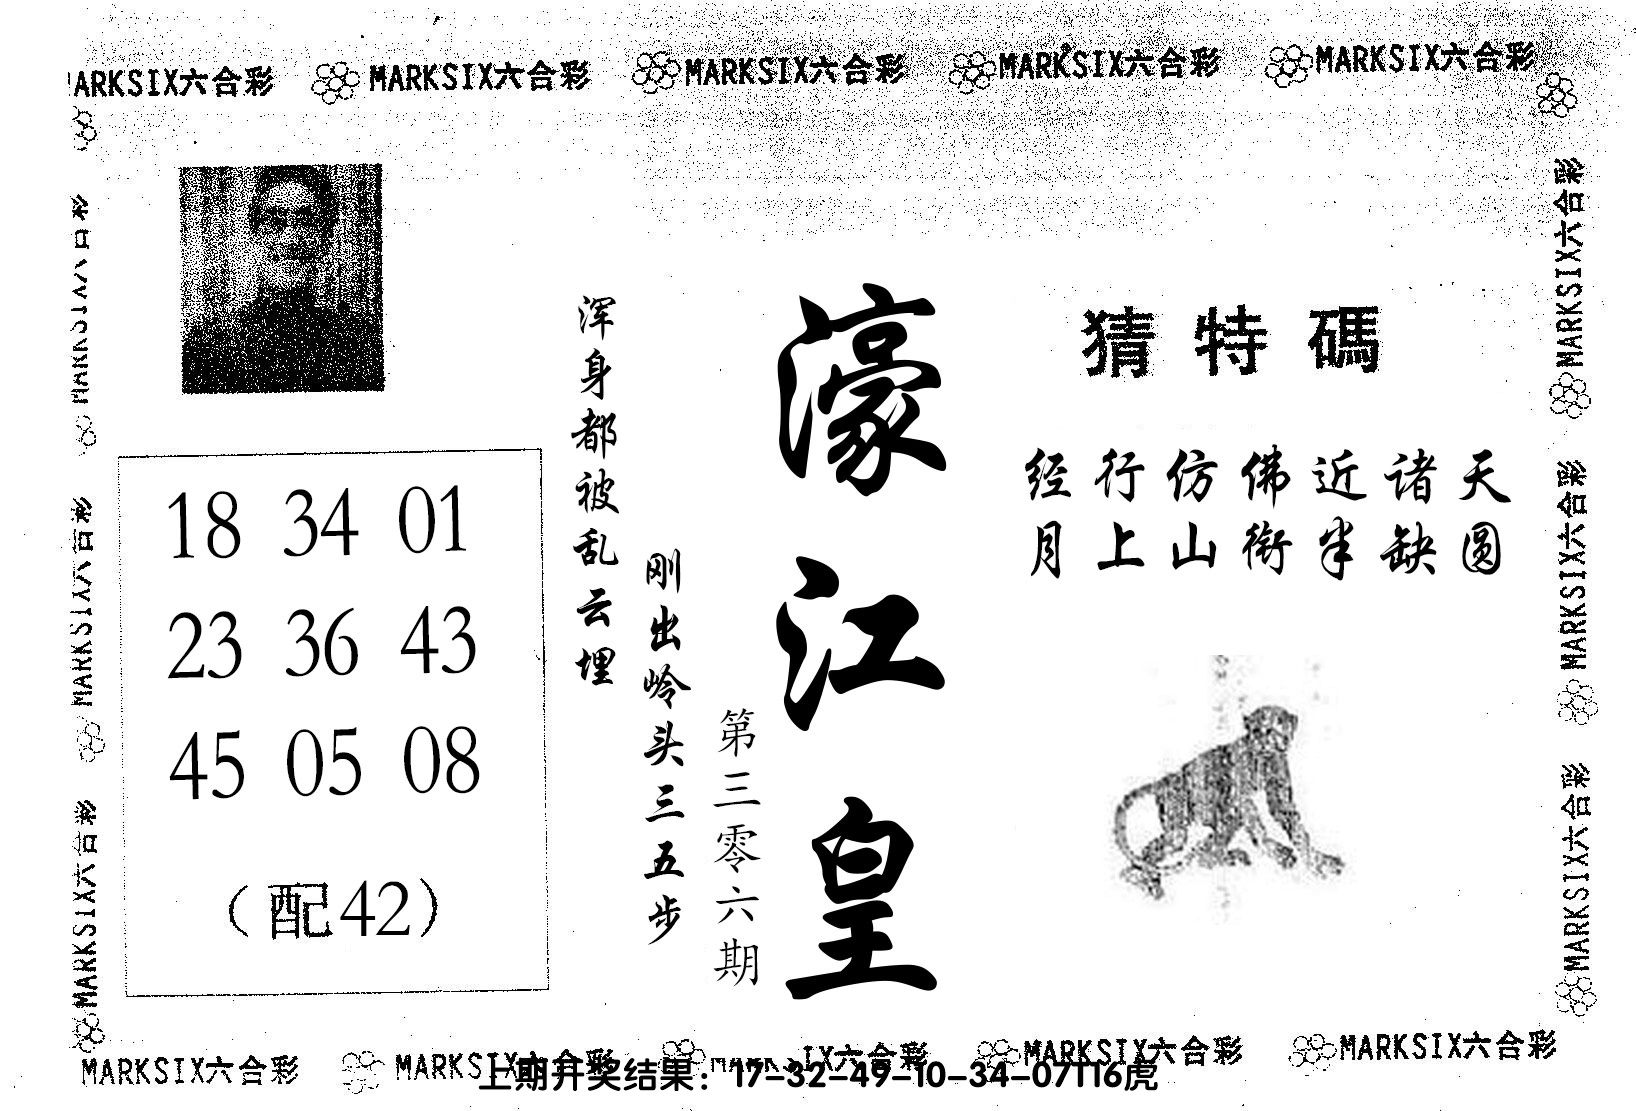 MARKSIX六合彩 MARKSIX六合彩 MARKSIX六合彩 MARKSIX六合彩
猜特碼
经行仿佛近诸天
月上山衔半缺圆
濠江皇
第三零六期
刚出岭头三五步
浑身都被乱云埋
18 34 01
23 36 43
45 05 08
（配42）
MARKSIX六合彩
MARKSIX六合彩
MARKSIX六合彩
MARKSIX六合彩
MARKSIX六合彩
MARKSIX六合彩 MARKSIX六合彩 MARKSIX六合彩 MARKSIX六合彩
上期开奖结果：17-32-49-10-34-07T16虎